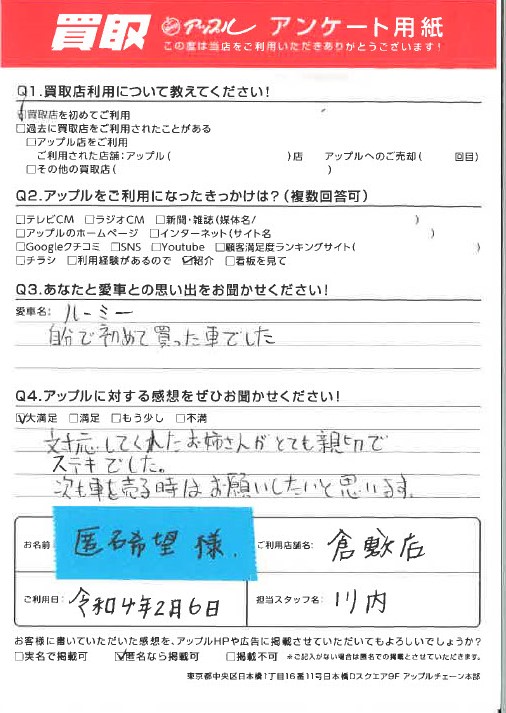 買取 アップル アンケート用紙
この度は当店をご利用いただきありがとうございます!
Q1.買取店利用について教えてください!
☑買取店を初めてご利用
□過去に買取店をご利用されたことがある
□アップル店をご利用
ご利用された店舗:アップル( )店 アップルへのご売却( 回目)
□その他の買取店( )
Q2.アップルをご利用になったきっかけは?(複数回答可)
□テレビCM □ラジオCM □新聞・雑誌(媒体名/ )
□アップルのホームページ □インターネット(サイト名 )
□Googleクチコミ □SNS □Youtube □顧客満足度ランキングサイト( )
□チラシ □利用経験があるので ☑紹介 □看板を見て
Q3.あなたと愛車との思い出をお聞かせください!
愛車名: ルーミー
自分で初めて買った車でした
Q4.アップルに対する感想をぜひお聞かせください!
☑大満足 □満足 □もう少し □不満
対応してくれたお姉さんがとても親切で
ステキでした。
次も車を売る時はお願いしたいと思います。
お名前 匿名希望 様. ご利用店舗名: 倉敷店
ご利用日: 令和4年2月6日 担当スタッフ名: 川内
お客様に書いていただいた感想を、アップルHPや広告に掲載させていただいてもよろしいでしょうか?
□実名で掲載可 ☑匿名なら掲載可 □掲載不可 *ご記入がない場合は匿名での掲載とさせていただきます。
東京都中央区日本橋1丁目16番11号日本橋Dスクエア9F アップルチェーン本部